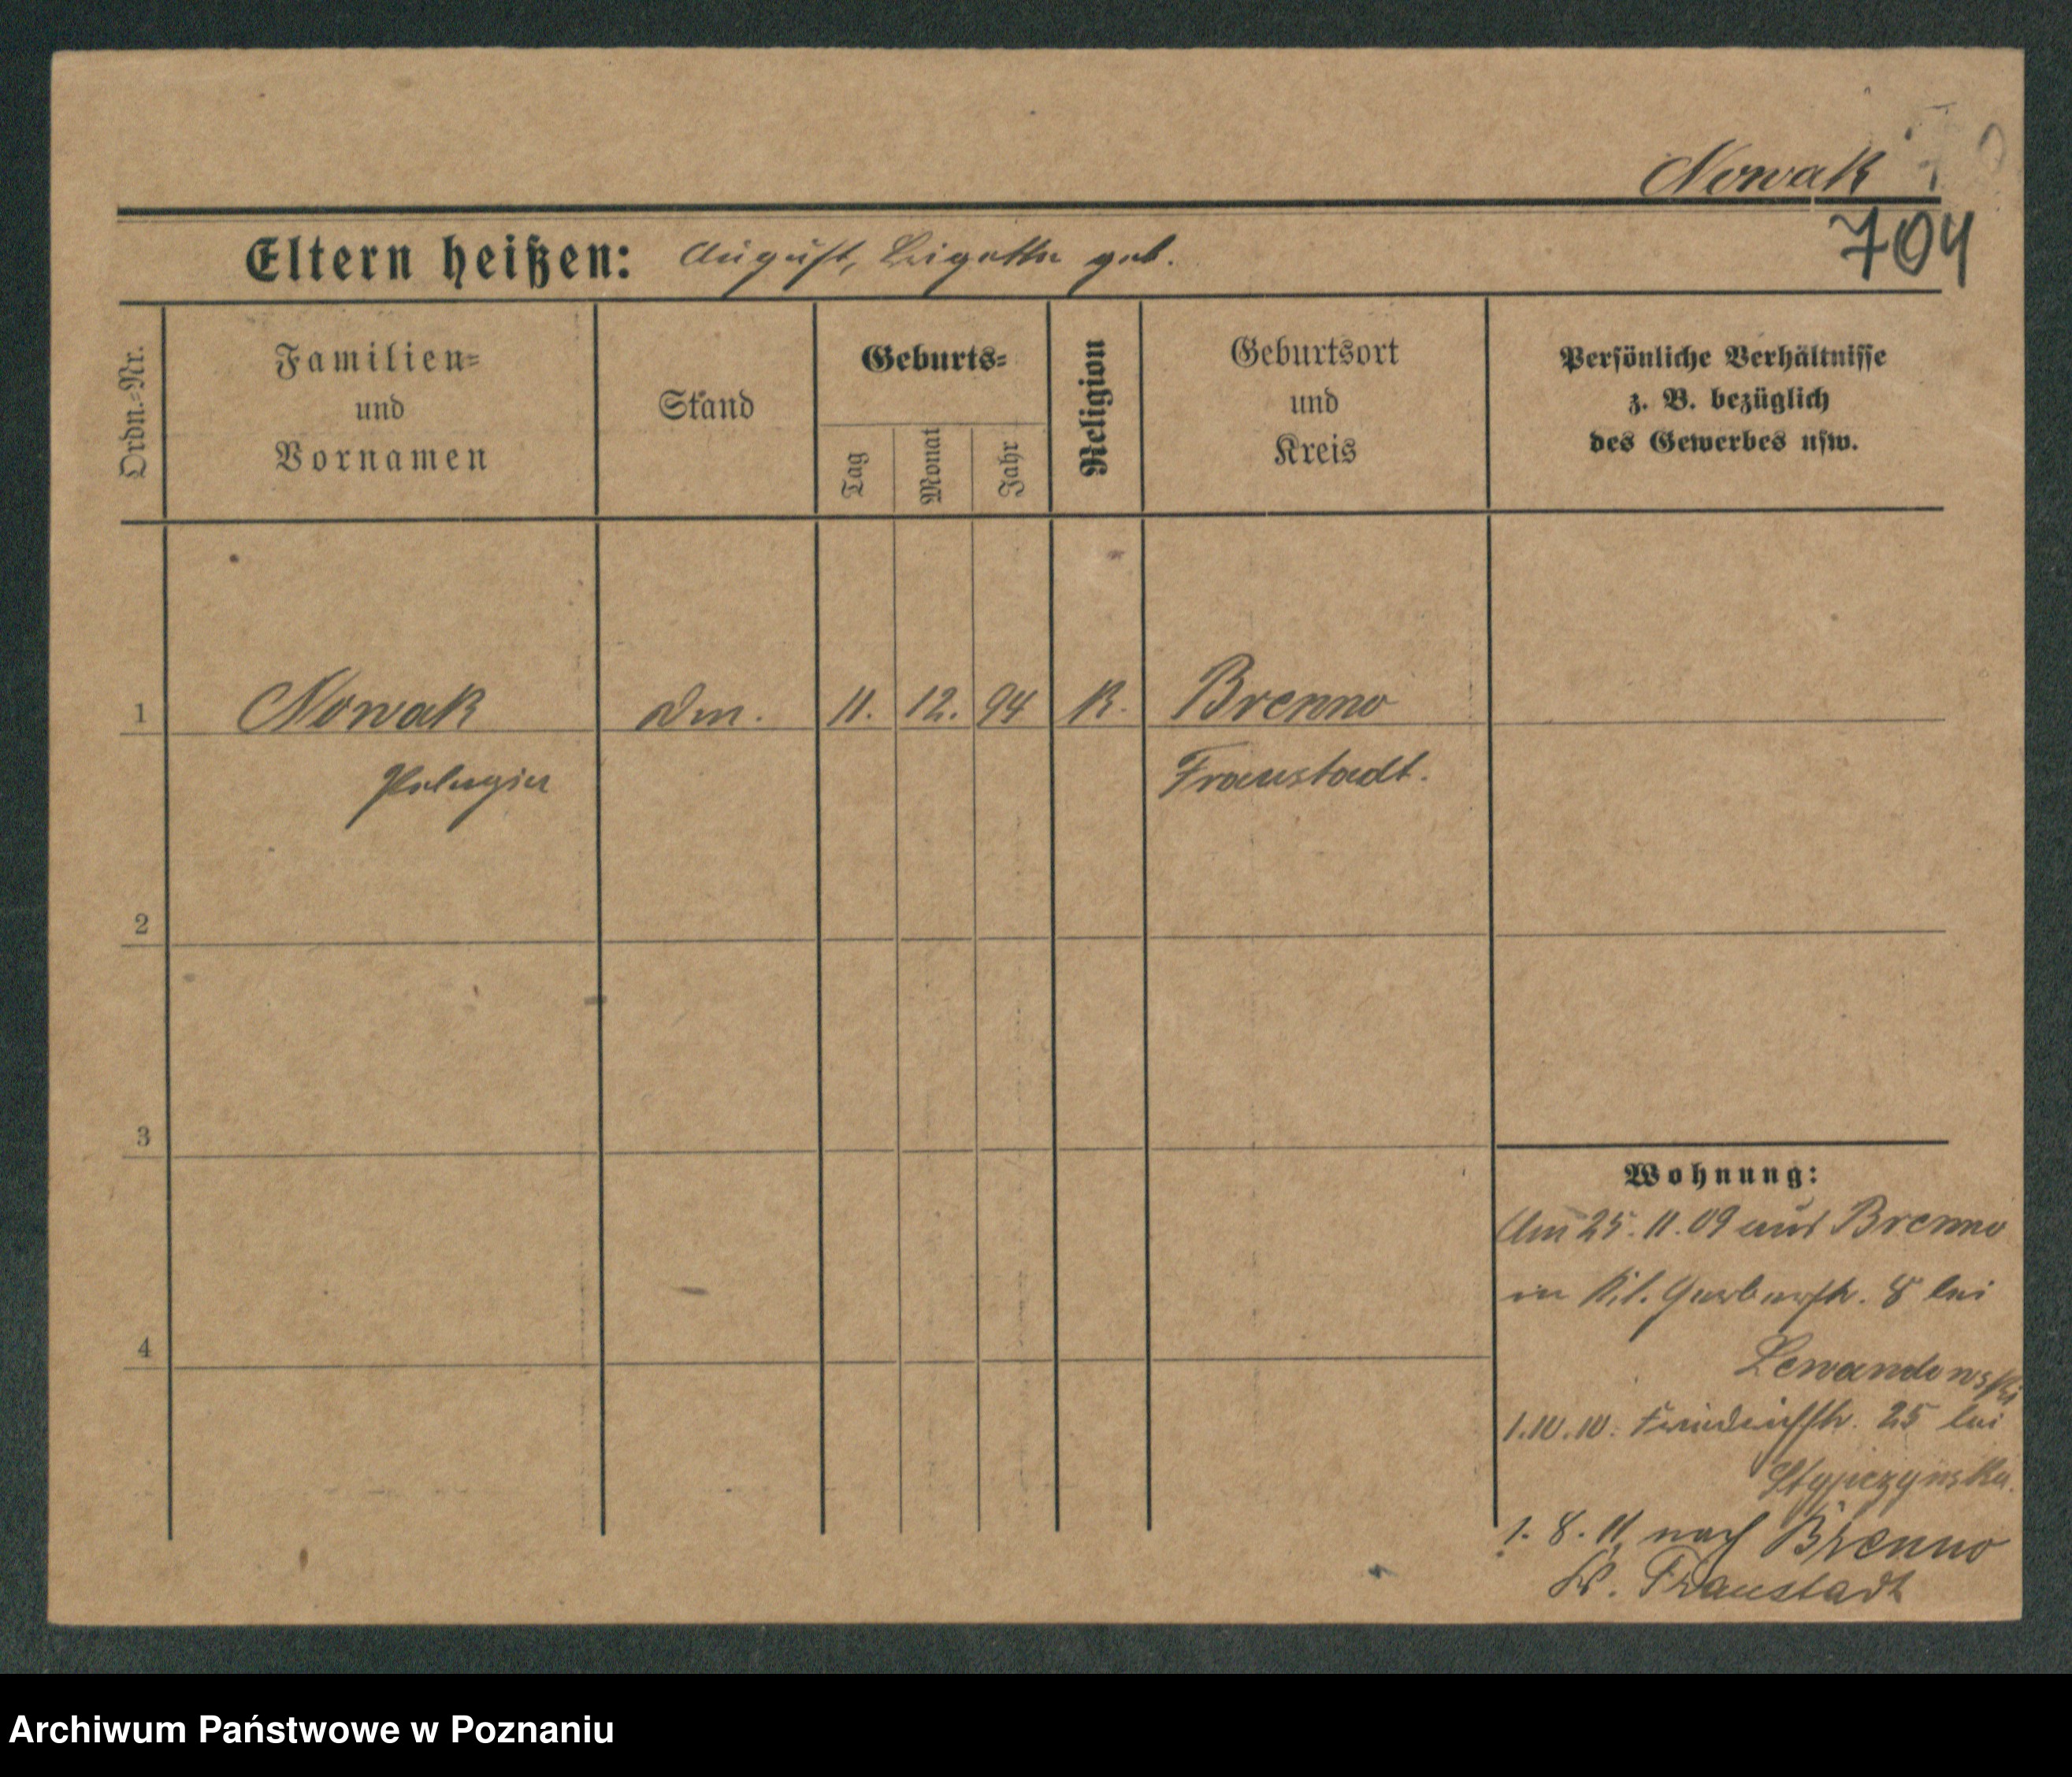 Nowak
704
Eltern heißen: August, Brigitta geb.
Ordn.=Nr.
Familien=
und
Vornamen
Stand
Geburts=
Tag
Monat
Jahr
Religion
Geburtsort
und
Kreis
Persönliche Verhältnisse
z. B. bezüglich
des Gewerbes usw.
1 Nowak Dm. 11. 12. 94 K. Brenno
Pelagia Fraustadt.
2
3
4
Wohnung:
Am 25.11.09 aus Brenno
in Kl. Gerberstr. 8 bei
Lewandowski
1.10.10. Friedrichstr. 25 bei
Stypczynska.
1. 8. 11 nach Brenno
Kr. Fraustadt
Archiwum Państwowe w Poznaniu